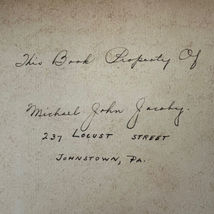 This Book Property Of
Michael John Jacoby.
237 LOCUST STREET
JOHNSTOWN, PA.